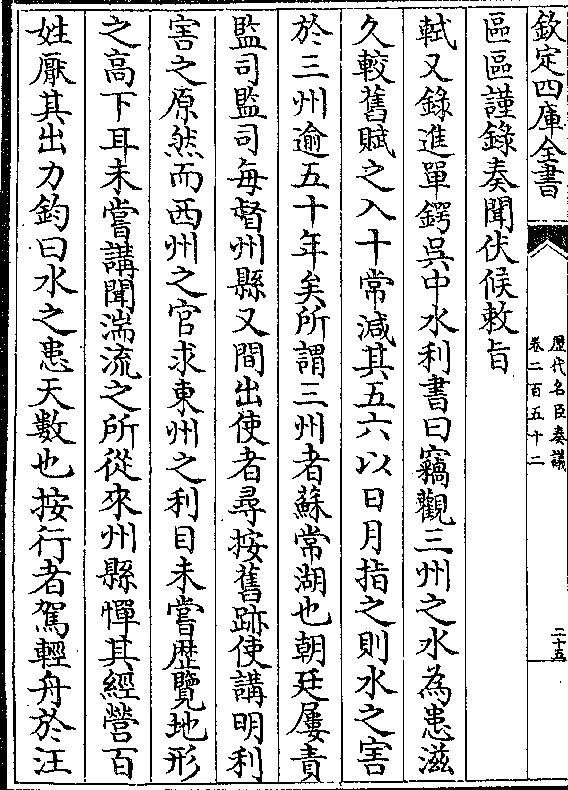 欽定四庫全書
歷代名臣奏議
卷二百五十二
二十五
區區謹錄奏聞伏候敕旨
軾又錄進單鍔吳中水利書曰竊觀三州之水為患滋
久較舊賦之入十常減其五六以日月指之則水之害
於三州逾五十年矣所謂三州者蘇常湖也朝廷屢責
監司監司每督州縣又間出使者尋按舊跡使講明利
害之原然而西州之官求東州之利目未嘗歴覽地形
之高下耳未嘗講聞湍流之所從來州縣憚其經營百
姓厭其出力鈞曰水之患天數也按行者駕輕舟於汪